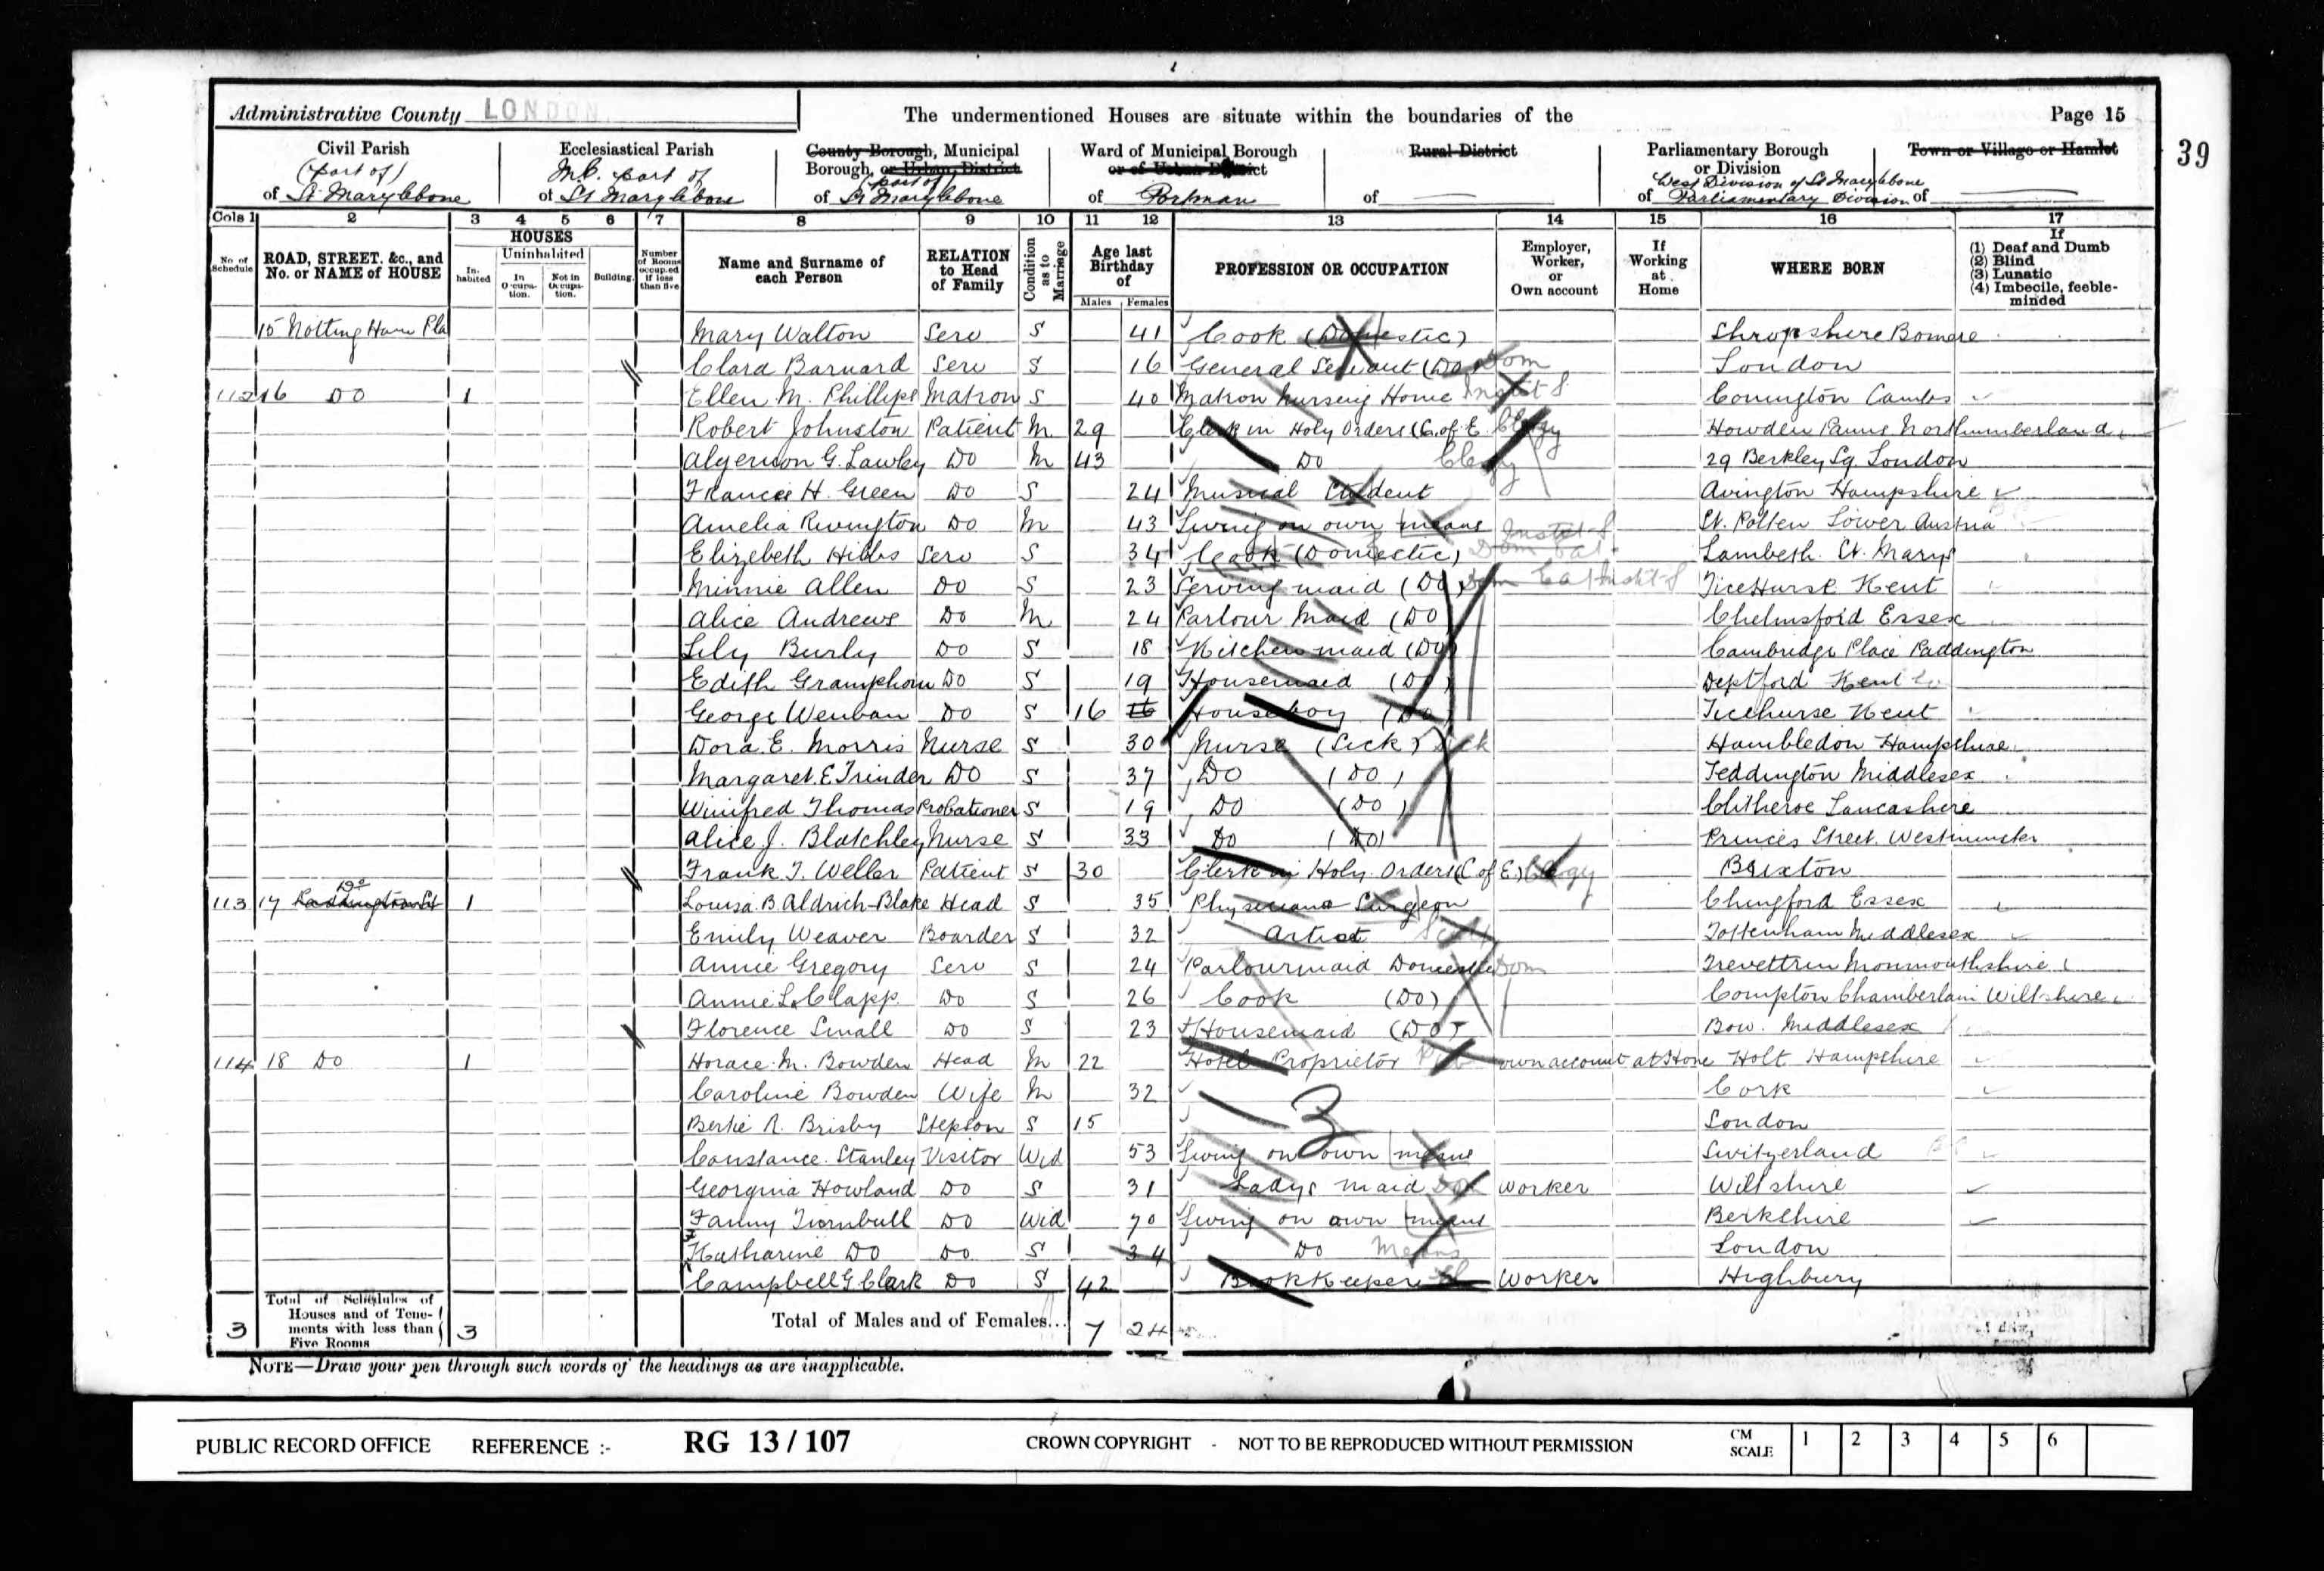 Administrative County LONDON The undermentioned Houses are situate within the boundaries of the Page 15
39
Civil Parish (part of) of St Marylebone
Ecclesiastical Parish part of of St Marylebone
County Borough, Municipal Borough, or Urban District (part of) of St Marylebone
Ward of Municipal Borough or of Urban District of Portman
Rural District of
Parliamentary Borough or Division West Division of St Marylebone of Parliamentary Division
Town or Village or Hamlet of
Cols 1 2 3 4 5 6 7 8 9 10 11 12 13 14 15 16 17
No. of Schedule
ROAD, STREET, &c., and No. or NAME of HOUSE
HOUSES
Inhabited
Uninhabited
In Occupation.
Not in Occupation.
Building.
Number of Rooms occupied if less than five
Name and Surname of each Person
RELATION to Head of Family
Condition as to Marriage
Age last Birthday of
Males Females
PROFESSION OR OCCUPATION
Employer, Worker, or Own account
If Working at Home
WHERE BORN
If (1) Deaf and Dumb (2) Blind (3) Lunatic (4) Imbecile, feeble-minded
15 Notting Ham Pla Mary Walton Serv S 41 Cook (Domestic) Shropshire Bomere
Clara Barnard Serv S 16 General Servant (Do) Dom London
112 16 Do 1 Ellen M. Phillips Matron S 40 Matron Nursing Home Instit S Conington Cambs
Robert Johnston Patient M 29 Clerk in Holy Orders (C. of E. Clergy Howden Panns Northumberland
Algernon G. Lawley Do M 43 Do Clergy 29 Berkley Sq. London
Frances H. Green Do S 24 Musical Student Avington Hampshire
Amelia Rivington Do M 43 Living on own means St. Polten Lower Austria
Elizabeth Hibbs Serv S 34 Cook (Domestic) Lambeth St. Marys
Minnie Allen Do S 23 Serving maid (Do) TiceHurst Kent
Alice Andrews Do M 24 Parlour Maid (Do Chelmsford Essex
Lily Burly Do S 18 Kitchen maid (Do) Cambridge Place Paddington
Edith Gramphorn Do S 19 Housemaid (Do) Deptford Kent
George Wenban Do S 16 16 Houseboy (Do) Ticehurst Kent
Dora E. Morris Nurse S 30 Nurse (Sick) Sick Hambledon Hampshire
Margaret E Trinder Do S 37 Do (Do) Teddington Middlesex
Winifred Thomas Probationer S 19 Do (Do) Clitheroe Lancashire
Alice J. Blatchley Nurse S 33 Do (Do) Princes Street Westminster
Frank T. Weller Patient S 30 Clerk in Holy Orders (C of E) Clergy Brixton
113 17 Do Paddington St 1 Louisa B. Aldrich-Blake Head S 35 Physician & Surgeon Chingford Essex
Emily Weaver Boarder S 32 Artist Tottenham Middlesex
Annie Gregory Serv S 24 Parlourmaid Domestic Dom Trevettrin Monmouthshire
Annie L. Clapp Do S 26 Cook (Do) Compton Chamberlain Wiltshire
Florence Small Do S 23 Housemaid (Do) Bow. Middlesex
114 18 Do 1 Horace M. Bowden Head M 22 Hotel Proprietor own account at Home Holt Hampshire
Caroline Bowden Wife M 32 Cork
Bertie R. Brisby Stepson S 15 London
3
Constance Stanley Visitor Wid 53 Living on own means Switzerland
Georgina Howland Do S 31 Ladys maid Dom Worker Wiltshire
Fanny Turnbull Do Wid 70 Living on own means Berkshire
Katharine Do Do S 34 Do Means London
Campbell G Clark Do S 42 Bookkeeper Worker Highbury
3 Total of Schedules of Houses and of Tenements with less than Five Rooms 3 Total of Males and of Females... 7 24
NOTE—Draw your pen through such words of the headings as are inapplicable.
PUBLIC RECORD OFFICE REFERENCE :- RG 13/107 CROWN COPYRIGHT - NOT TO BE REPRODUCED WITHOUT PERMISSION CM SCALE 1 2 3 4 5 6